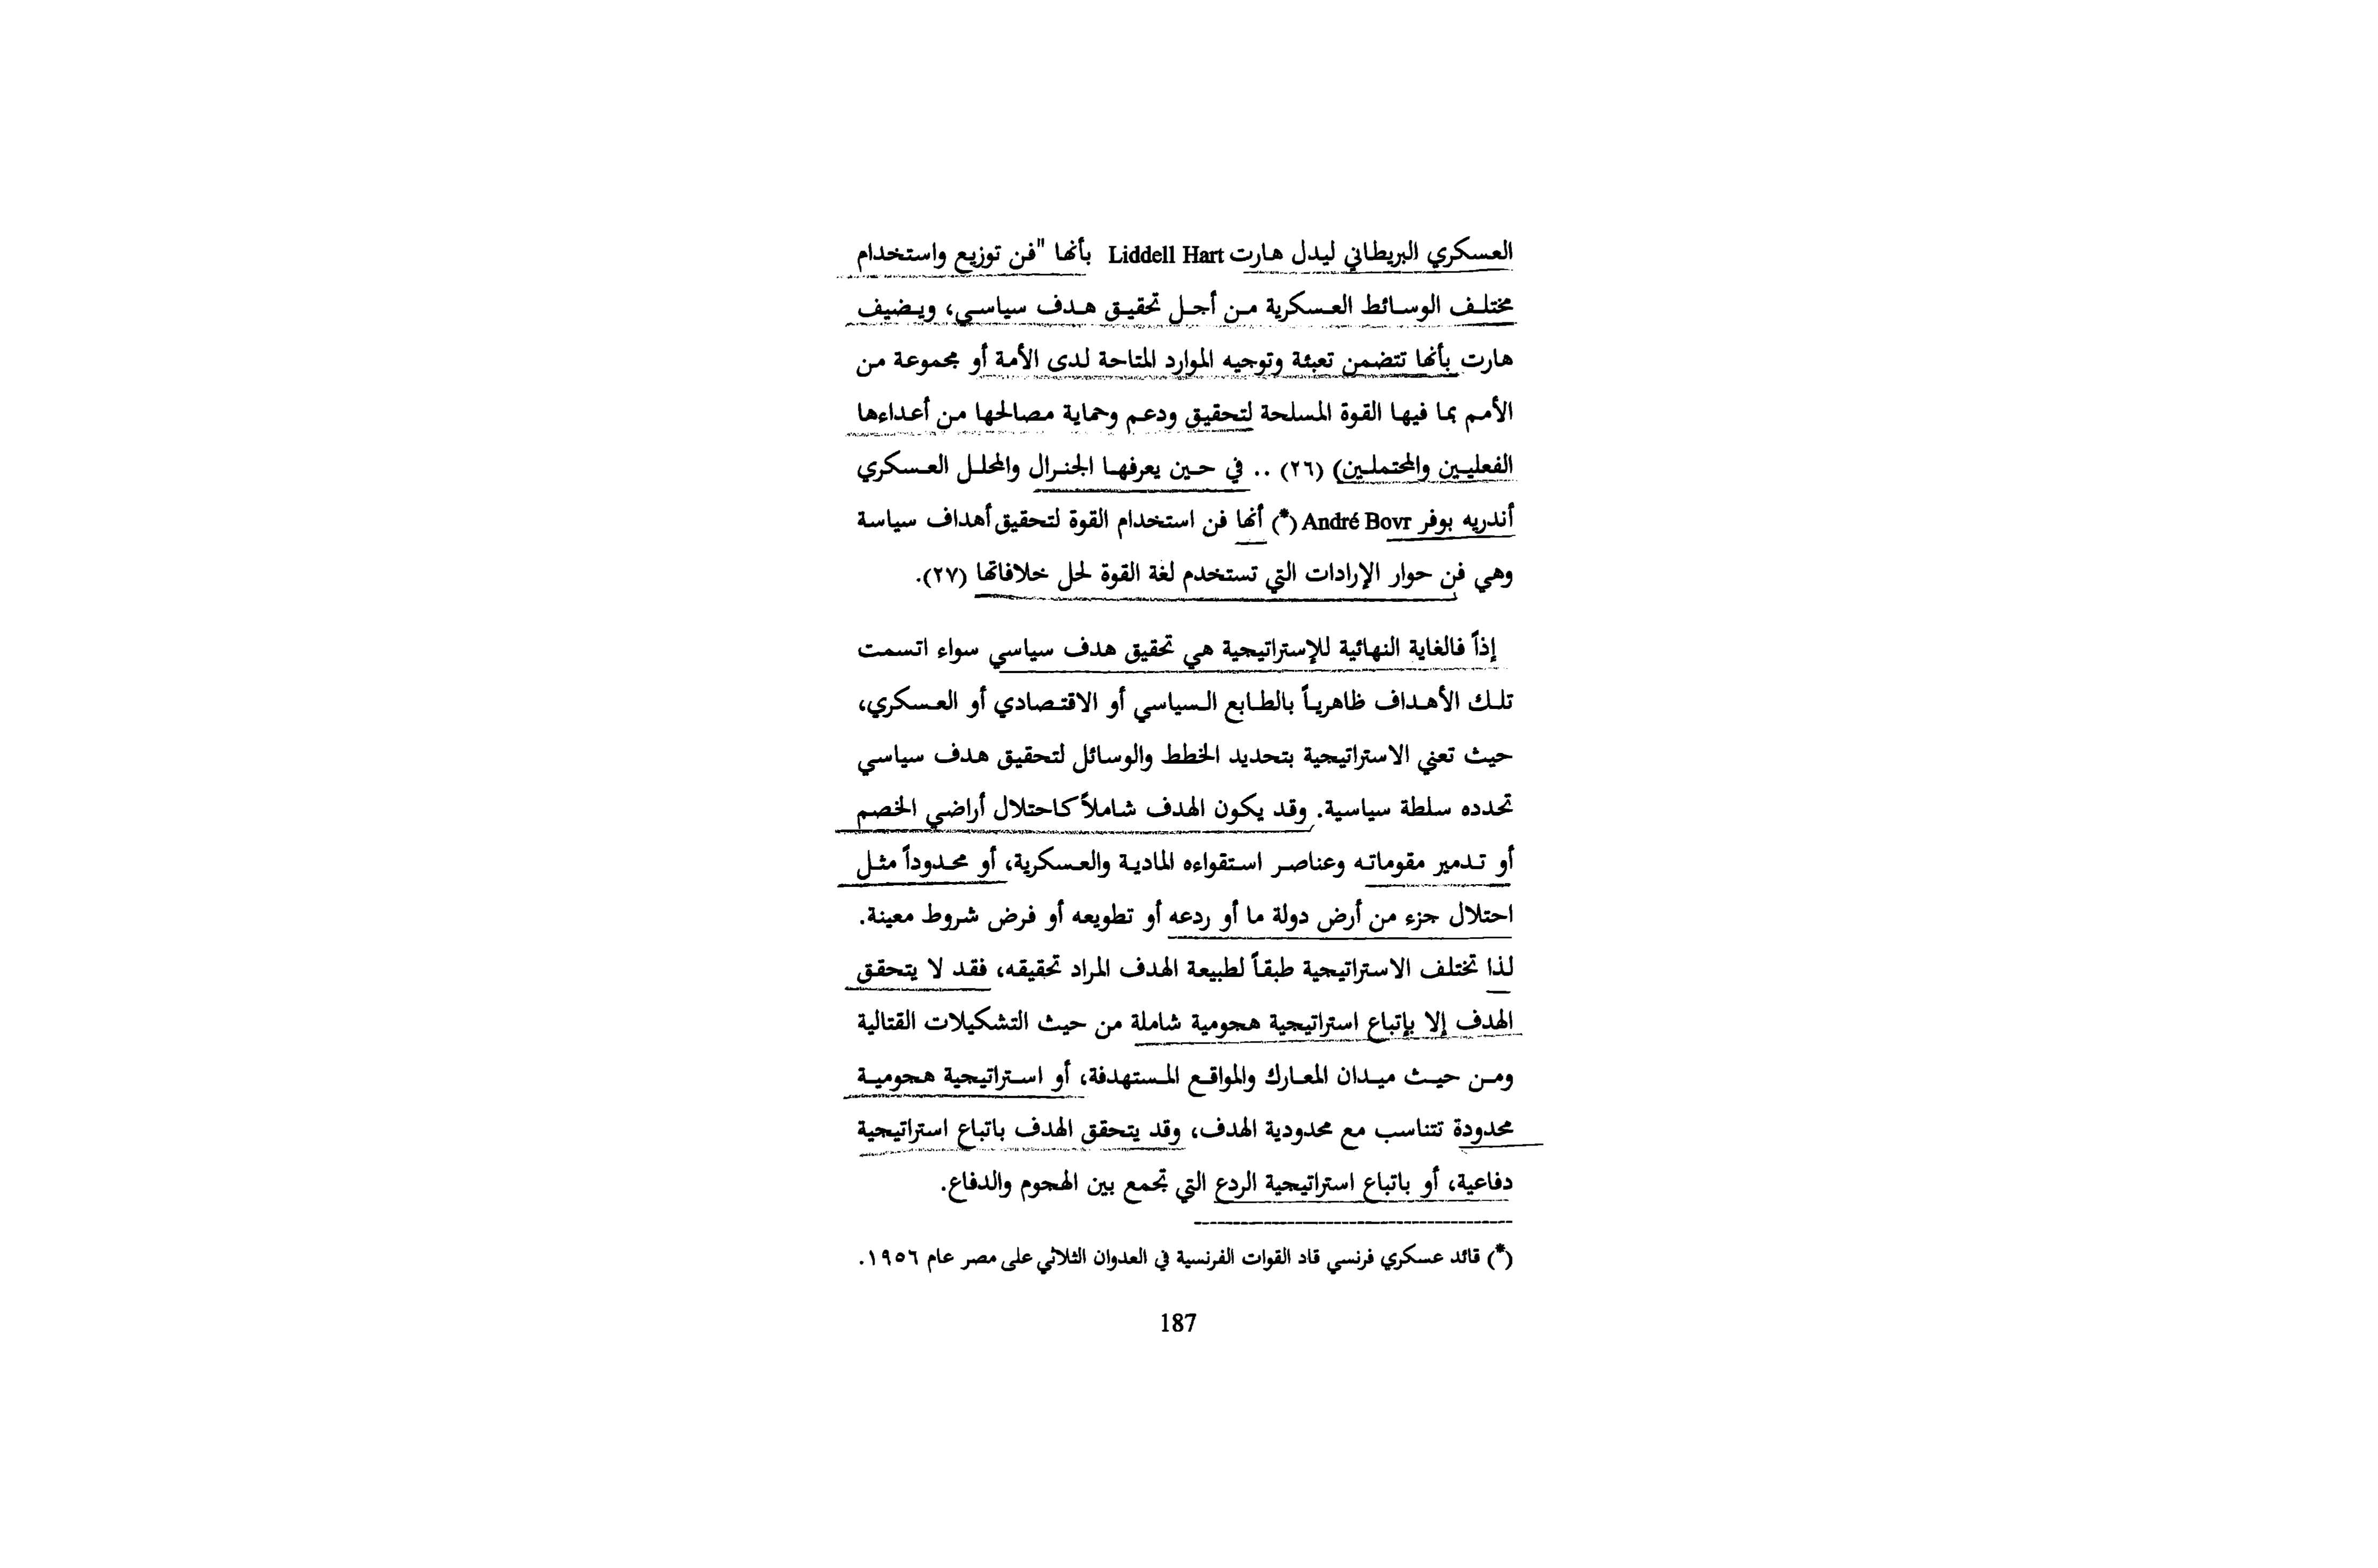 العسكري البريطاني ليدل هارت Liddell Hart بأنها "فن توزيع واستخدام
مختلف الوسائط العسكرية من أجل تحقيق هدف سياسي، ويضيف
هارت بأنها تتضمن تعبئة وتوجيه الموارد المتاحة لدى الأمة أو مجموعة من
الأمم بما فيها القوة المسلحة لتحقيق ودعم وحماية مصالحها من أعداءها
الفعليين والمحتملين) (٢٦) .. في حين يعرفها الجنرال والمحلل العسكري
أندريه بوفر André Bovr (*) أنها فن استخدام القوة لتحقيق أهداف سياسة
وهي فن حوار الإرادات التي تستخدم لغة القوة لحل خلافاتها (٢٧).
إذاً فالغاية النهائية للإستراتيجية هي تحقيق هدف سياسي سواء اتسمت
تلك الأهداف ظاهرياً بالطابع السياسي أو الاقتصادي أو العسكري،
حيث تعني الاستراتيجية بتحديد الخطط والوسائل لتحقيق هدف سياسي
تحدده سلطة سياسية. وقد يكون الهدف شاملاً كاحتلال أراضي الخصم
أو تدمير مقوماته وعناصر استقواءه المادية والعسكرية، أو محدوداً مثل
احتلال جزء من أرض دولة ما أو ردعه أو تطويعه أو فرض شروط معينة.
لذا تختلف الاستراتيجية طبقاً لطبيعة الهدف المراد تحقيقه، فقد لا يتحقق
الهدف إلا بإتباع استراتيجية هجومية شاملة من حيث التشكيلات القتالية
ومن حيث ميدان المعارك والمواقع المستهدفة، أو استراتيجية هجومية
محدودة تتناسب مع محدودية الهدف، وقد يتحقق الهدف باتباع استراتيجية
دفاعية، أو باتباع استراتيجية الردع التي تجمع بين الهجوم والدفاع.
(*) قائد عسكري فرنسي قاد القوات الفرنسية في العدوان الثلاثي على مصر عام ١٩٥٦.
187